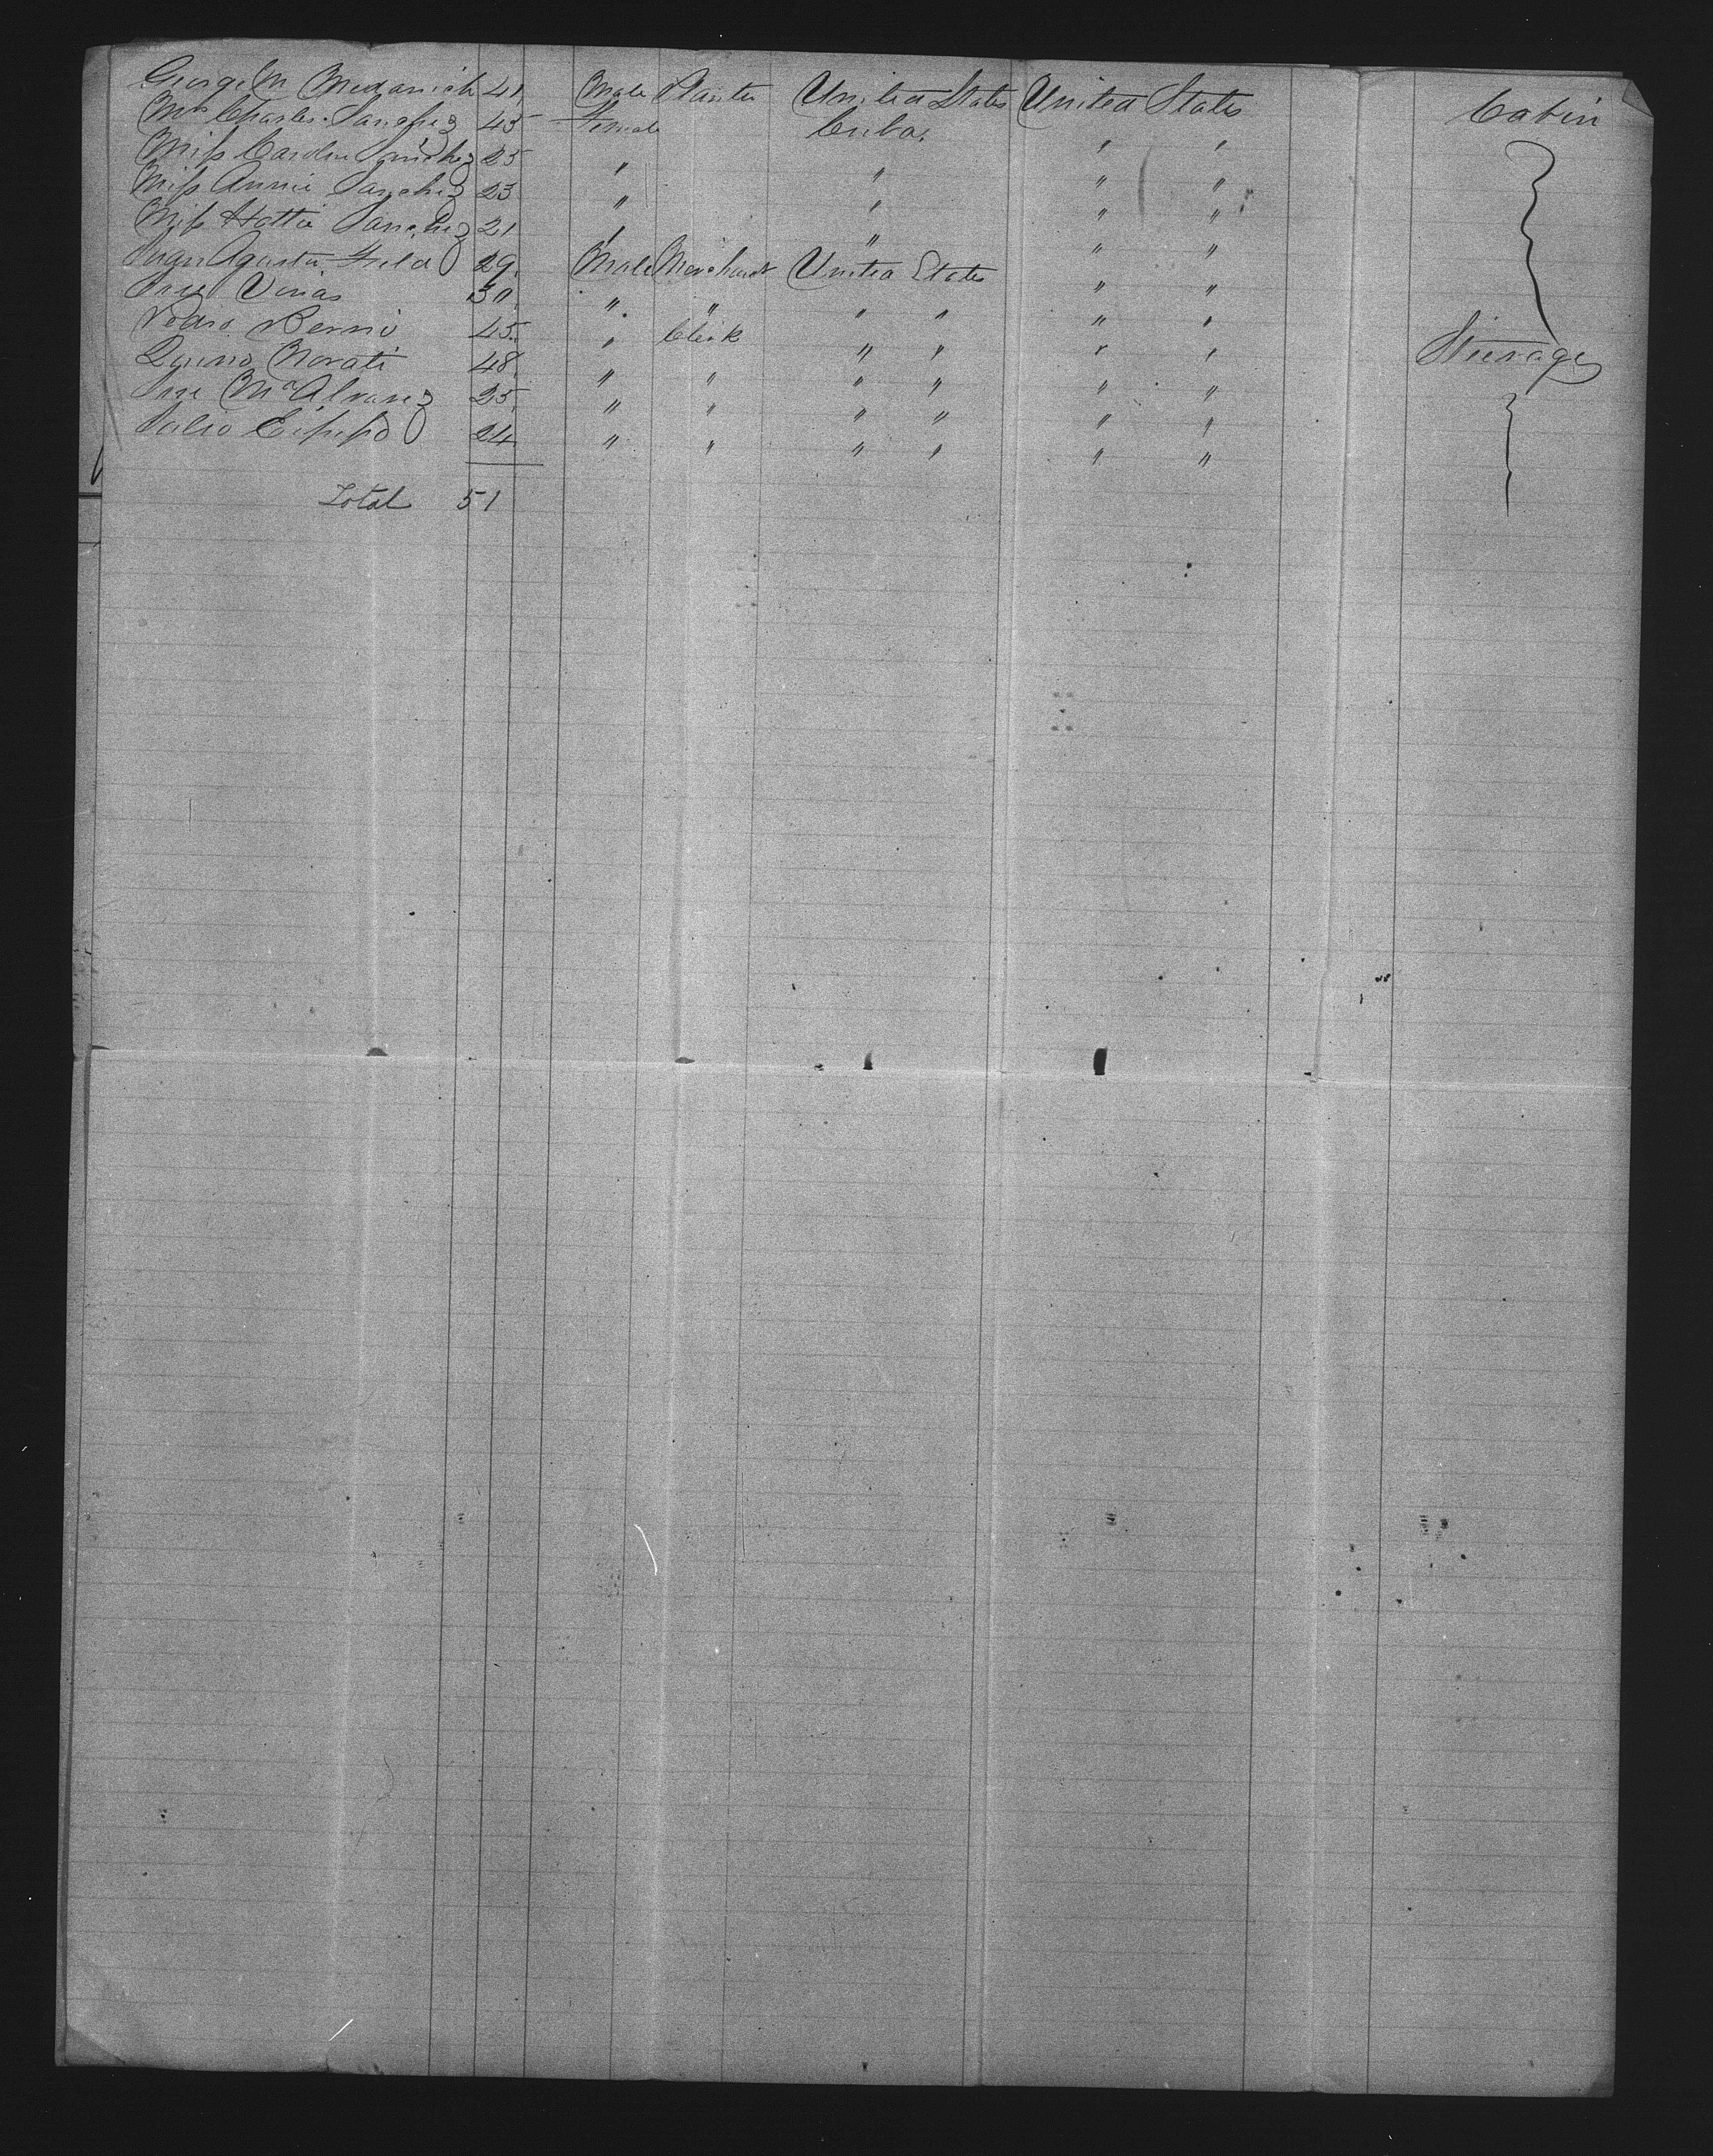 George M 41 Male Planter United States United States Cabin
Mrs Charles Sanchez 45 Female Cuba. " "
Miss Sanchez 25 " " " "
Miss Annie Sanchez 23 " " " "
Miss Hattie Sanchez 21 " " " "
Juan Agustin 29 Male Merchant United States " "
Jose Vinas 30 " " " " " "
Pedro Berrio 45 " Clerk " " " " Steerage
Morati 48 " " " " " "
Jose Ma Alvarez 25 " " " " " "
Julio 24 " " " " " "
Total 51